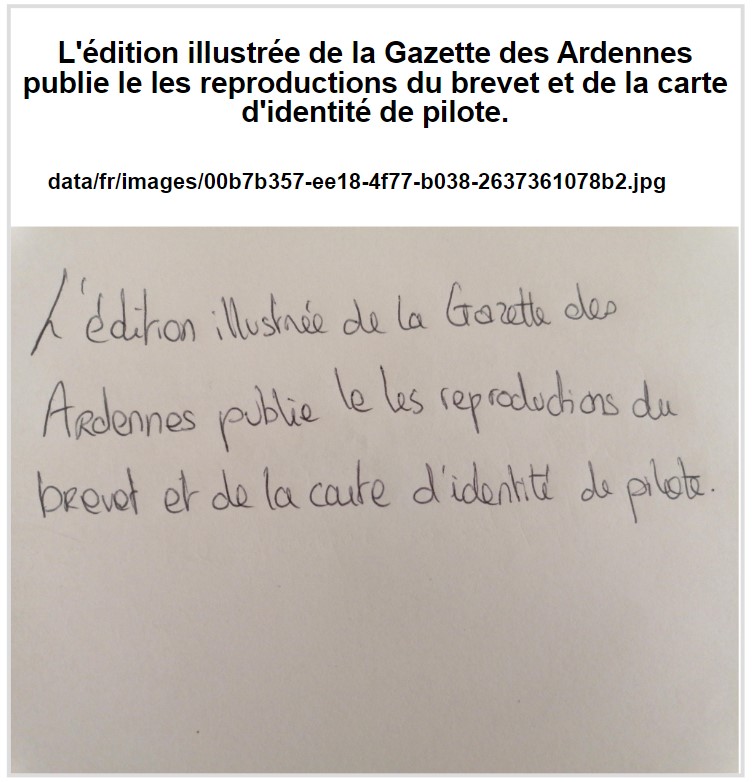 L'édition illustrée de la Gazette des Ardennes
publie le les reproductions du brevet et de la carte
d'identité de pilote.
data/fr/images/00b7b357-ee18-4f77-b038-2637361078b2.jpg
L'édition illustrée de la Gazette des
Ardennes publie le les reproductions du
brevet et de la carte d'identité de pilote.